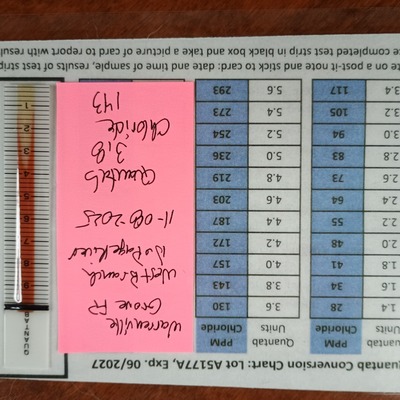 uantab Conversion Chart: Lot A5177A, Exp. 06/2027
Quantab PPM Quantab PPM
Units Chloride Units Chloride
1.4 28 3.6 130
1.6 34 3.8 143
1.8 41 4.0 157
2.0 48 4.2 172
2.2 55 4.4 187
2.4 64 4.6 203
2.6 73 4.8 219
2.8 83 5.0 236
3.0 94 5.2 254
3.2 105 5.4 273
3.4 117 5.6 293
Warrenville
Grove FP
West Branch
DuPage River
11-08-2025
Quantab
3.8
Chloride
143
QUANTA
9
8
7
6
5
4
3
2
1
te on a post-it note and stick to card: date and time of sample, results of test strip
e completed test strip in black box and take a picture of card to report with resu